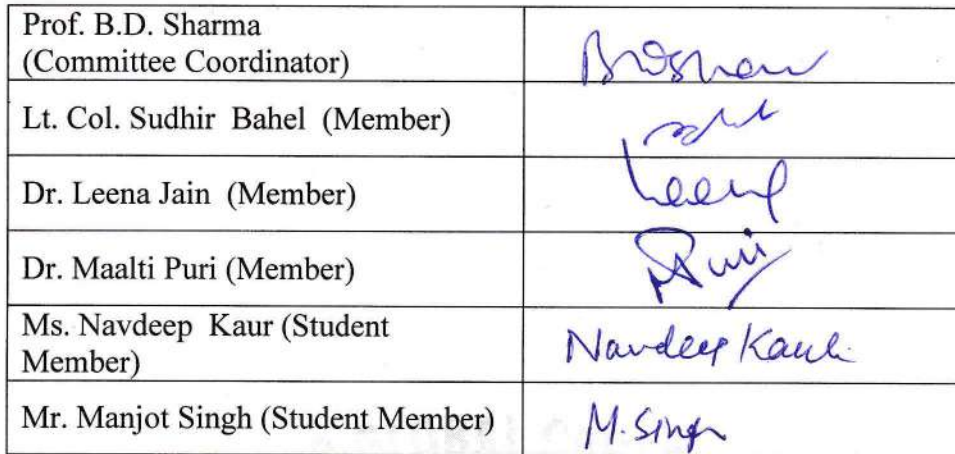 Prof. B.D. Sharma
(Committee Coordinator)
Lt. Col. Sudhir Bahel (Member)
Dr. Leena Jain (Member)
Leena
Dr. Maalti Puri (Member)
MPuri
Ms. Navdeep Kaur (Student
Member)
Navdeep Kaur
Mr. Manjot Singh (Student Member)
M. Singh